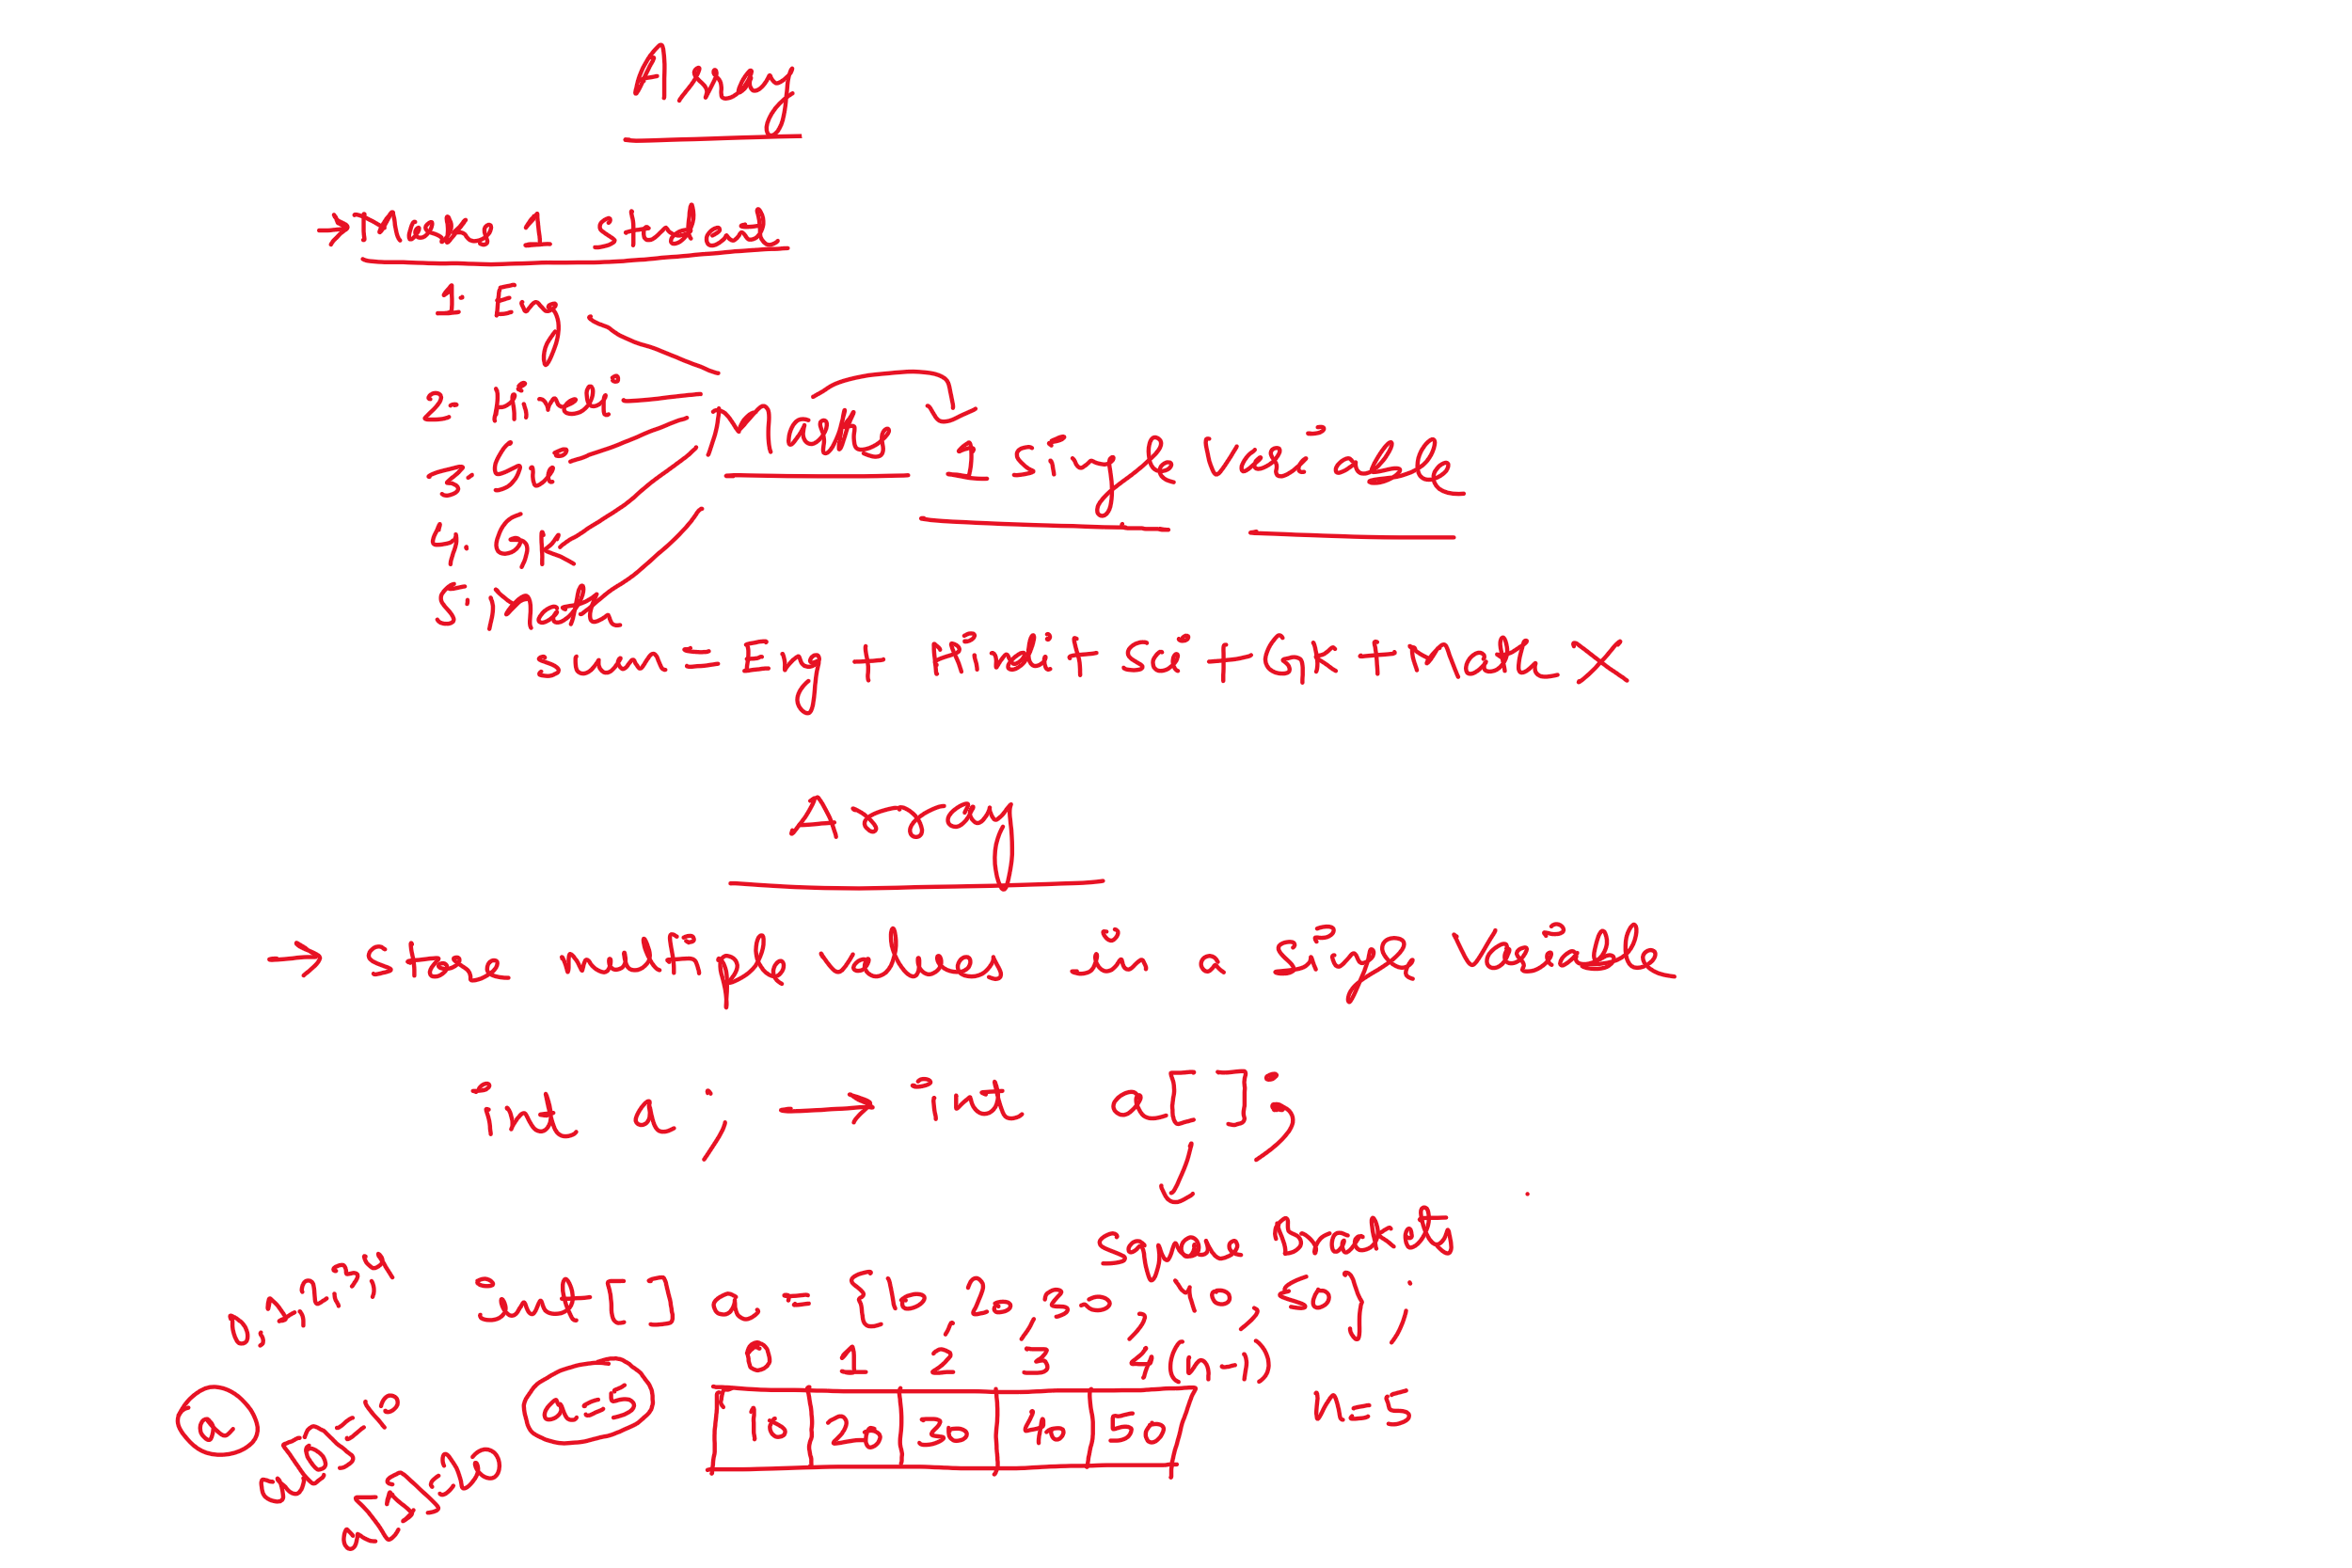 Array
→ Marks 1 student
1. Eng
2. Hindi
3. Sci
4. GK
5. Math
Marks 1 single variable
sum = Eng + Hindi + sci + GK + Math ×
Array
→ store multiple values in a single variable
int a ; → int a[];
square Brackets
0,1,2,3,4
int[] a = {10, 20, 30, 40, 50};
0 1 2 3 4 (n-1)
10 20 30 40 50
n=5
a=5
a
a[0]=10
a[1]=20